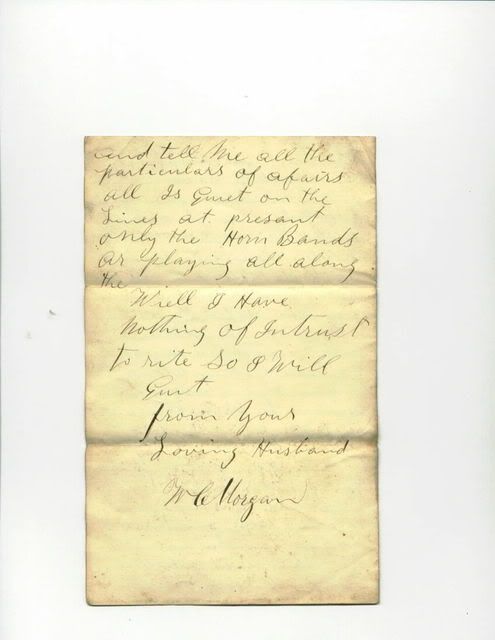 and tell Me all the
particulars of afairs
all Is Quiet on the
Lines at presant
only the Horn Bands
ar playing all along
the
Well I Have
Nothing of Intrust
to rite So I Will
Quit
from Your
Loving Husband
W C Morgan